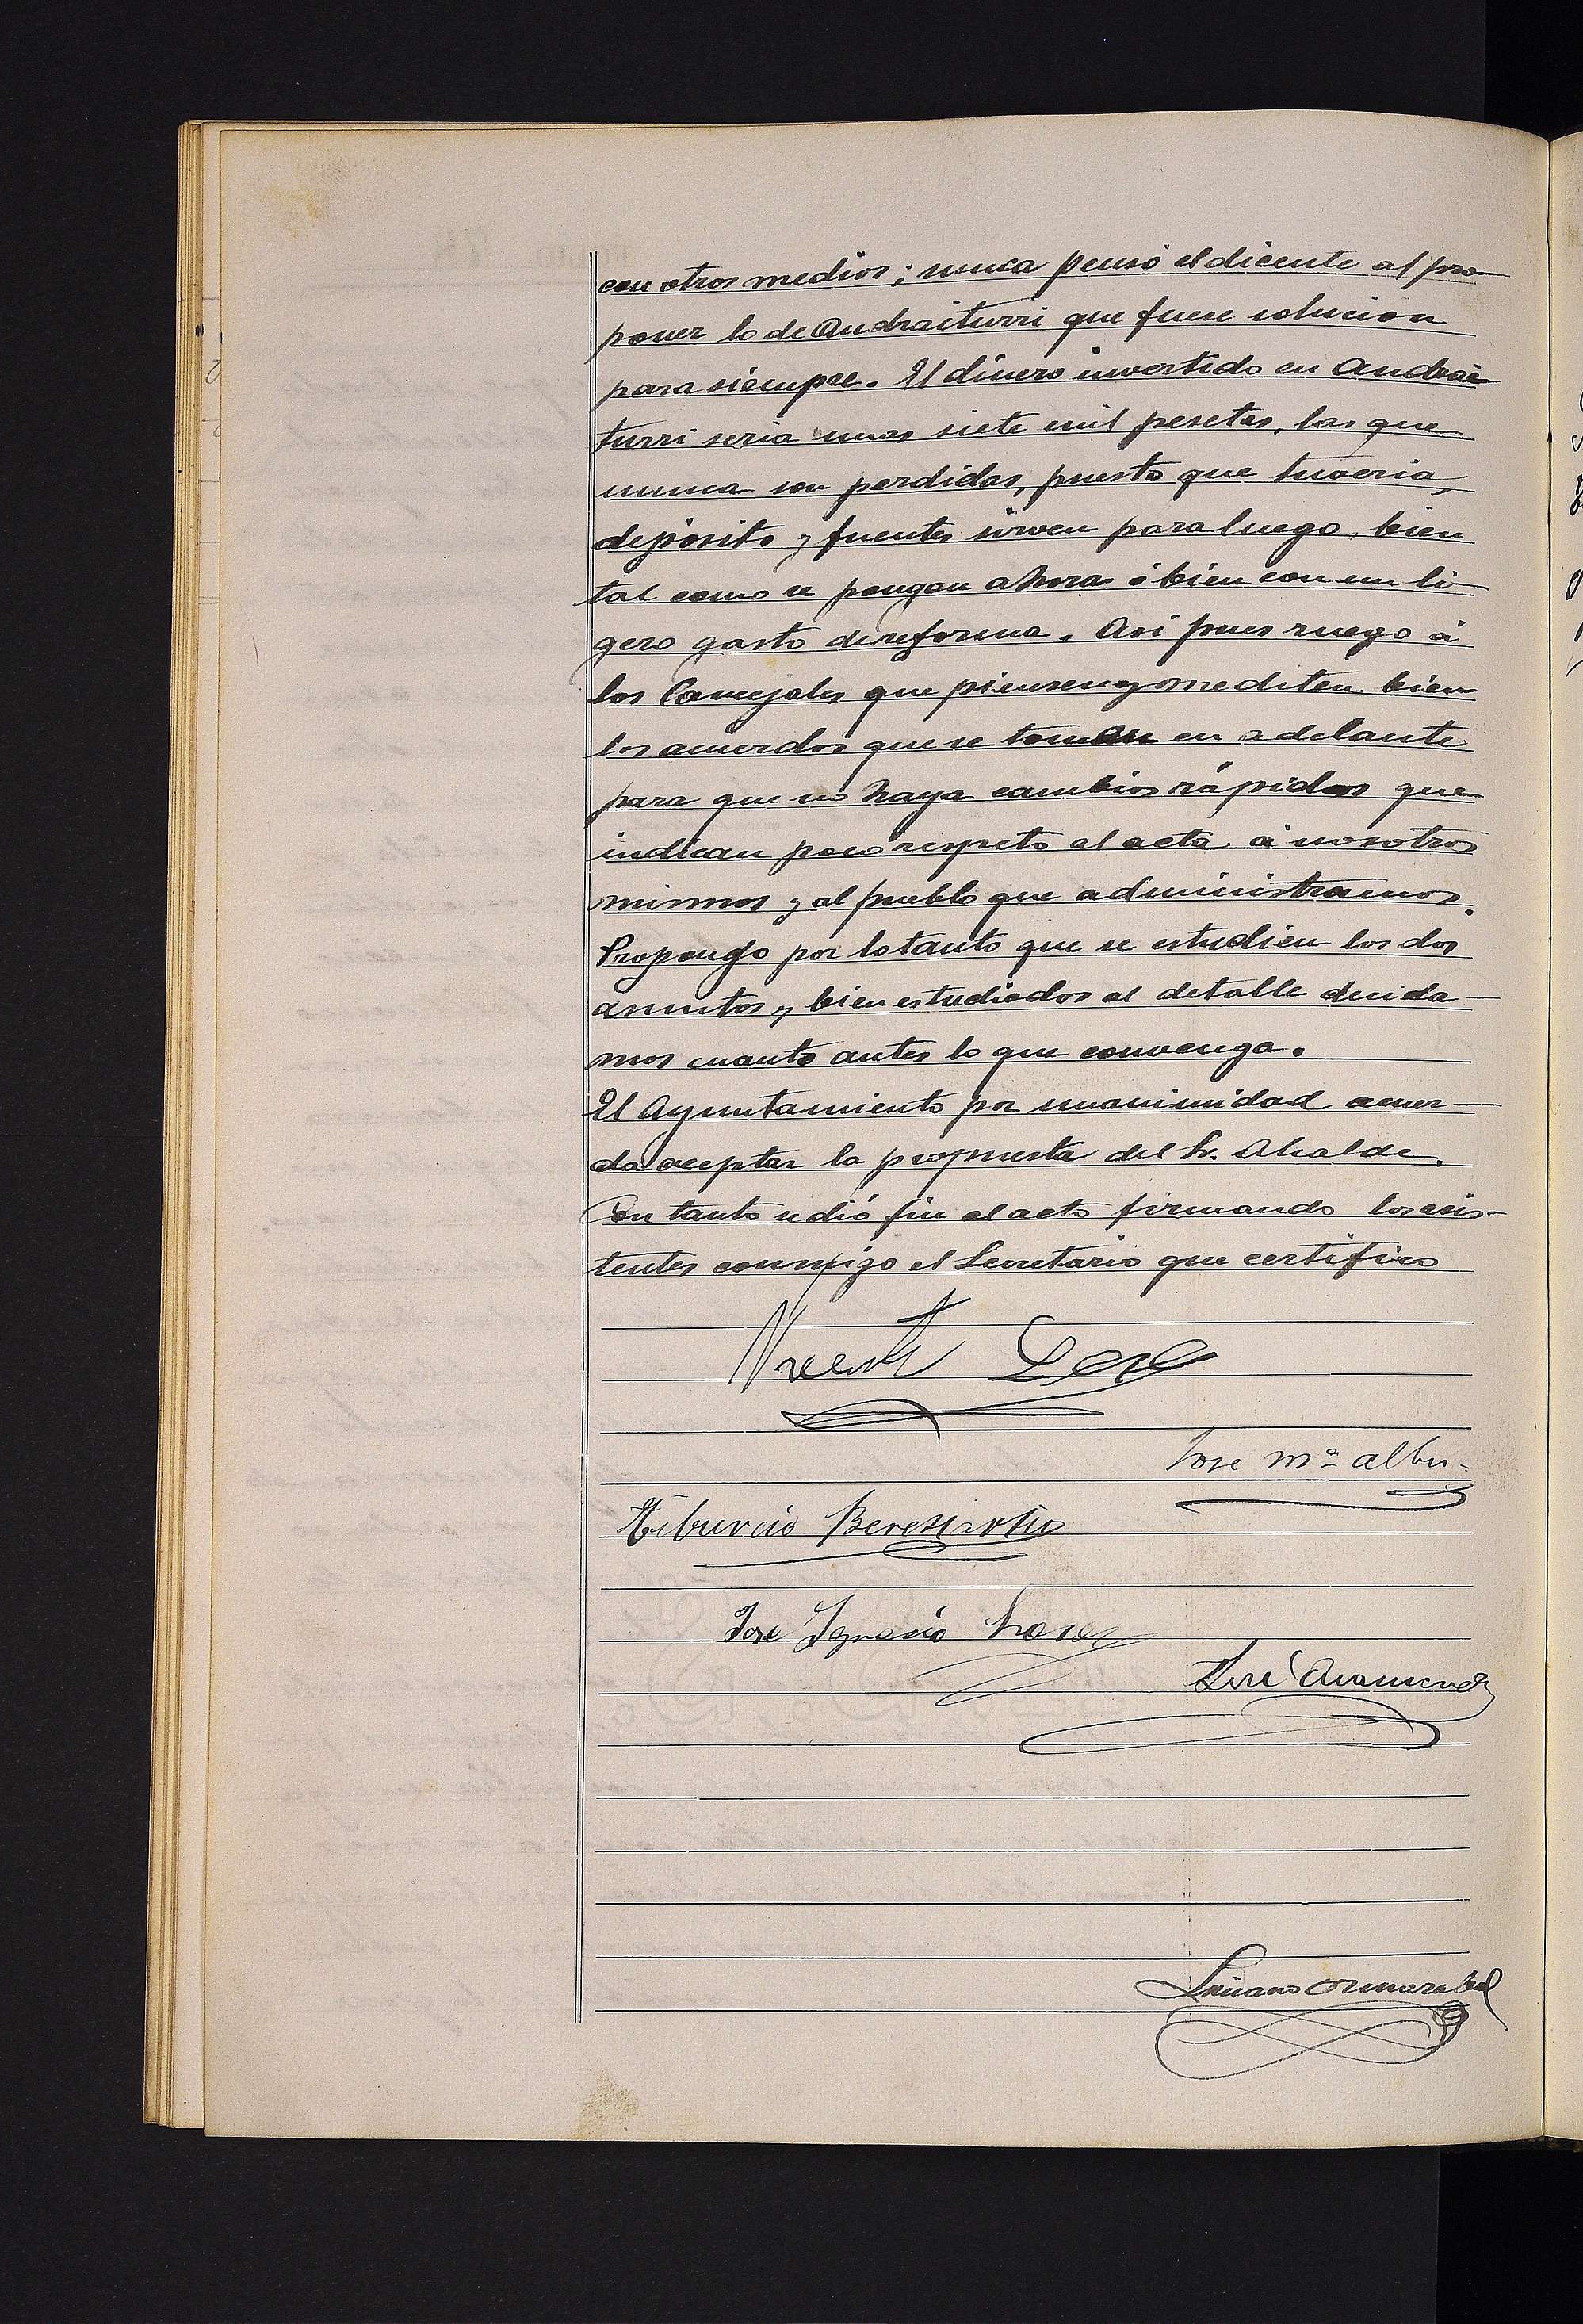 con otros medios; nunca pensó el dicente al pro-
poner lo de Andraiturri que fuese solución
para siempre. El dinero invertido en Andrai
turri seria unas siete mil pesetas, las que
nunca son perdidas, puesto que tuveria,
depósito y fuentes sirven para luego, bien
tal como se pongan ahora ó bien con un li-
gero gasto de reforma. Asi pues ruego á
los Concejales que piensen y mediten bien
los acuerdos que se toman en adelante
para que no haya cambios rápidos que
indican poco respeto al acta, á nosotros
mismos y al pueblo que administramos.
Propongo por lo tanto que se estudien los dos
asuntos y bien estudiados al detalle decida-
mos cuanto antes lo que convenga.
El Ayuntamiento por unanimidad acuer-
da aceptar la propuesta del Sr. Alcalde.
Con tanto se dió fin al acto firmando los asis-
tentes conmigo el Secretario que certifico
José Mª
Tiburcio Beresiartu
José Ignacio
José Aramendi
Luciano Ormazabal